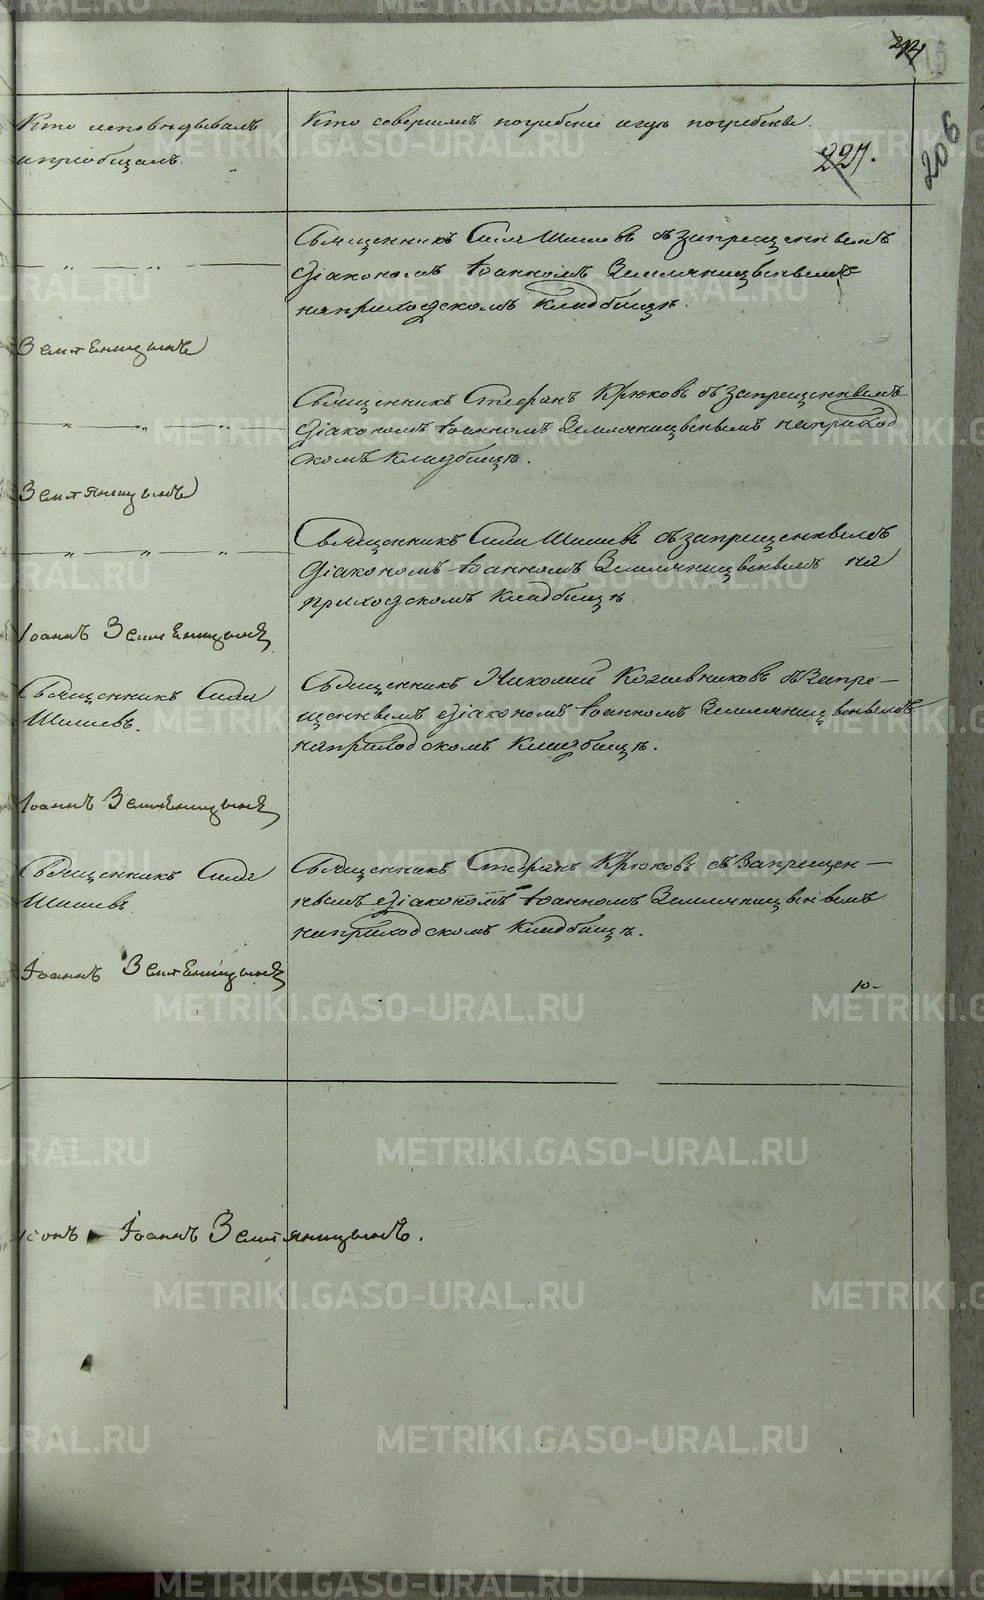 Кто исповѣдывалъ
и пріобщалъ.
Кто совершалъ погребеніе и гдѣ погребены.
227.
206
Священникъ Сила Шишевъ съ запрещеннымъ
діакономъ Іоанномъ Земляницынымъ
на приходскомъ кладбищѣ.
Земляницынъ
Священникъ Стефанъ Крюковъ съ запрещеннымъ
діакономъ Іоанномъ Земляницынымъ на приход
скомъ кладбищѣ.
Земляницынъ
Священникъ Сила Шишевъ съ запрещеннымъ
діакономъ Іоанномъ Земляницынымъ на
приходскомъ кладбищѣ.
Іоаннъ Земляницынъ
Священникъ Сила
Шишевъ.
Священникъ Николай Кожевниковъ съ запре-
щеннымъ діакономъ Іоанномъ Земляницынымъ
на приходскомъ кладбищѣ.
Іоаннъ Земляницынъ
Священникъ Сила
Шишевъ.
Священникъ Стефанъ Крюковъ съ запрещен-
нымъ діакономъ Іоанномъ Земляницынымъ
на приходскомъ кладбищѣ.
Іоаннъ Земляницынъ
Іоаннъ Земляницынъ.
METRIKI.GASO-URAL.RU